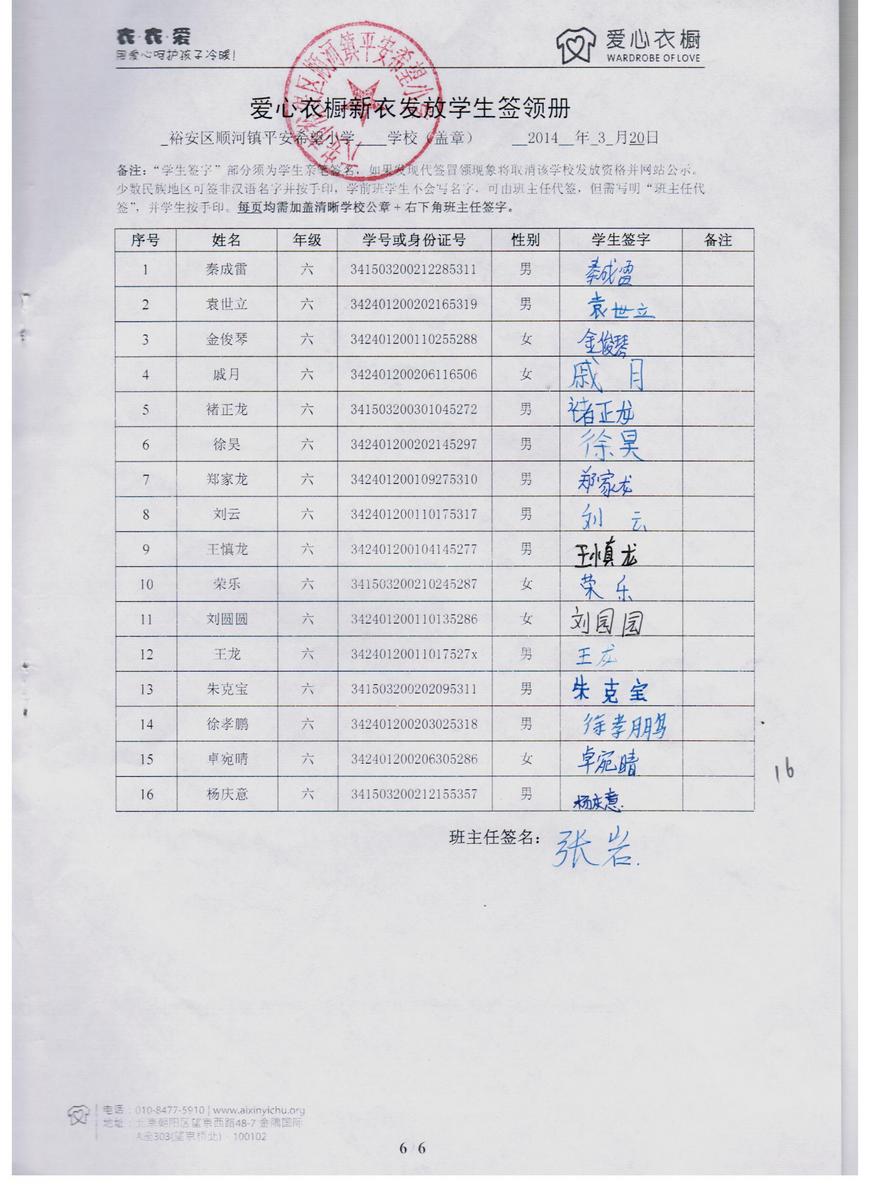 衣·衣·爱
用爱心呵护孩子冷暖!
爱心衣橱
WARDROBE OF LOVE
爱心衣橱新衣发放学生签领册
_裕安区顺河镇平安希望小学____学校（盖章） __2014__年_3_月20日
备注：“学生签字”部分须为学生亲笔签名，如果发现代签冒领现象将取消该学校发放资格并网站公示。
少数民族地区可签非汉语名字并按手印，学前班学生不会写名字，可由班主任代签，但需写明“班主任代
签”，并学生按手印。每页均需加盖清晰学校公章+右下角班主任签字。
序号 姓名 年级 学号或身份证号 性别 学生签字 备注
1 秦成雷 六 341503200212285311 男 秦成雷
2 袁世立 六 342401200202165319 男 袁世立
3 金俊琴 六 342401200110255288 女 金俊琴
4 戚月 六 342401200206116506 女 戚月
5 褚正龙 六 341503200301045272 男 褚正龙
6 徐昊 六 342401200202145297 男 徐昊
7 郑家龙 六 342401200109275310 男 郑家龙
8 刘云 六 342401200110175317 男 刘云
9 王慎龙 六 342401200104145277 男 王慎龙
10 荣乐 六 341503200210245287 女 荣乐
11 刘圆圆 六 342401200110135286 女 刘园园
12 王龙 六 34240120011017527x 男 王龙
13 朱克宝 六 341503200202095311 男 朱克宝
14 徐孝鹏 六 342401200203025318 男 徐孝鹏
15 卓宛晴 六 342401200206305286 女 卓宛晴
16 杨庆意 六 341503200212155357 男 杨庆意
16
班主任签名：张岩.
电话：010-8477-5910 | www.aixinyichu.org
地址：北京朝阳区望京西路48-7 金隅国际
A座303(望京桥北)·100102
6 / 6